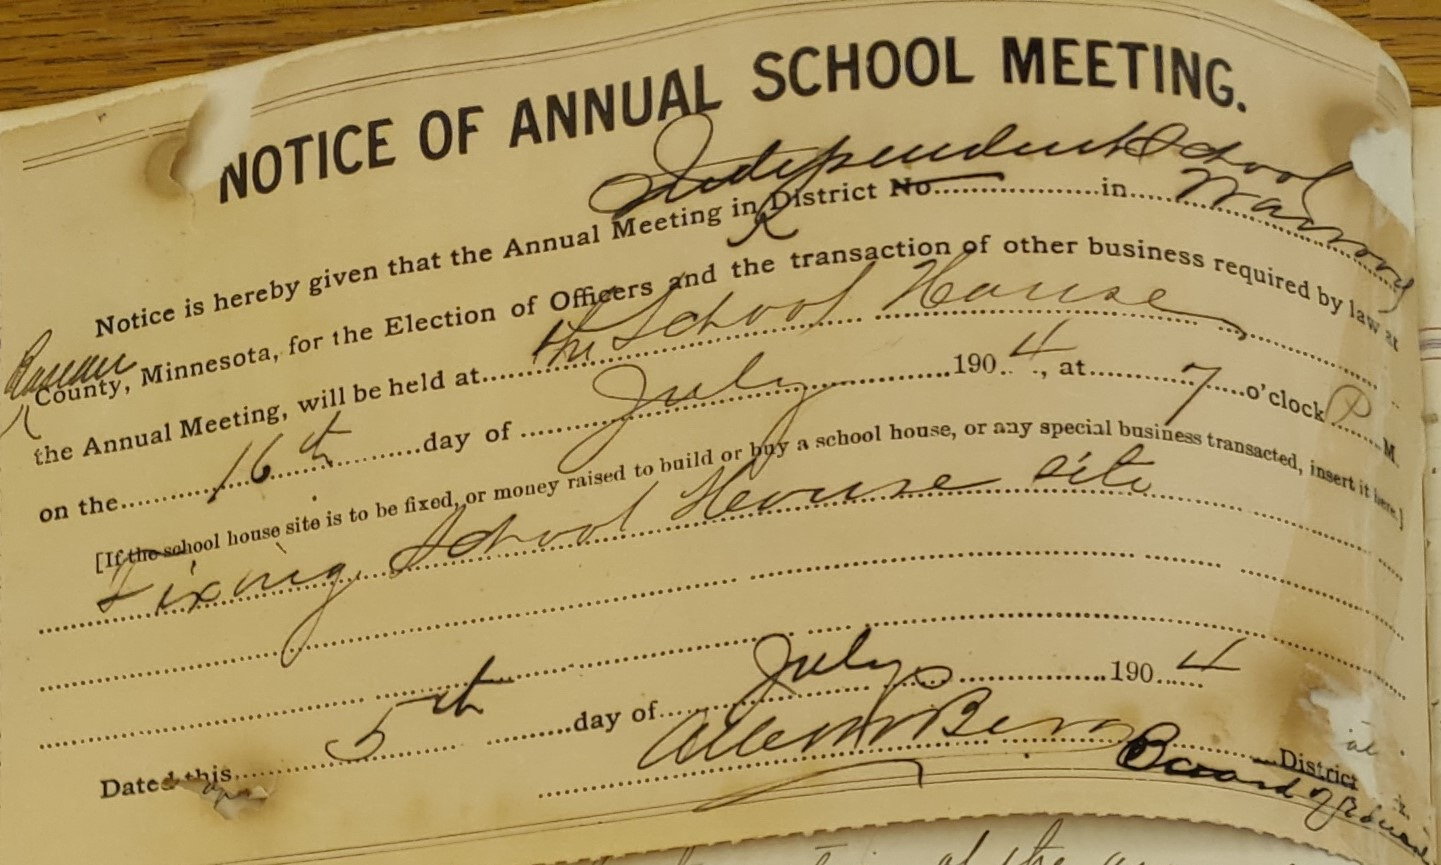 NOTICE OF ANNUAL SCHOOL MEETING.
Independent School
Notice is hereby given that the Annual Meeting in District No. in Warroad
Roseau
County, Minnesota, for the Election of Officers and the transaction of other business required by law at
the Annual Meeting, will be held at the School House
on the 16th day of July 1904, at 7 o'clock P M.
[If the school house site is to be fixed, or money raised to build or buy a school house, or any special business transacted, insert it here.]
Fixing School House site
Dated this 5th day of July 1904
District
Board of